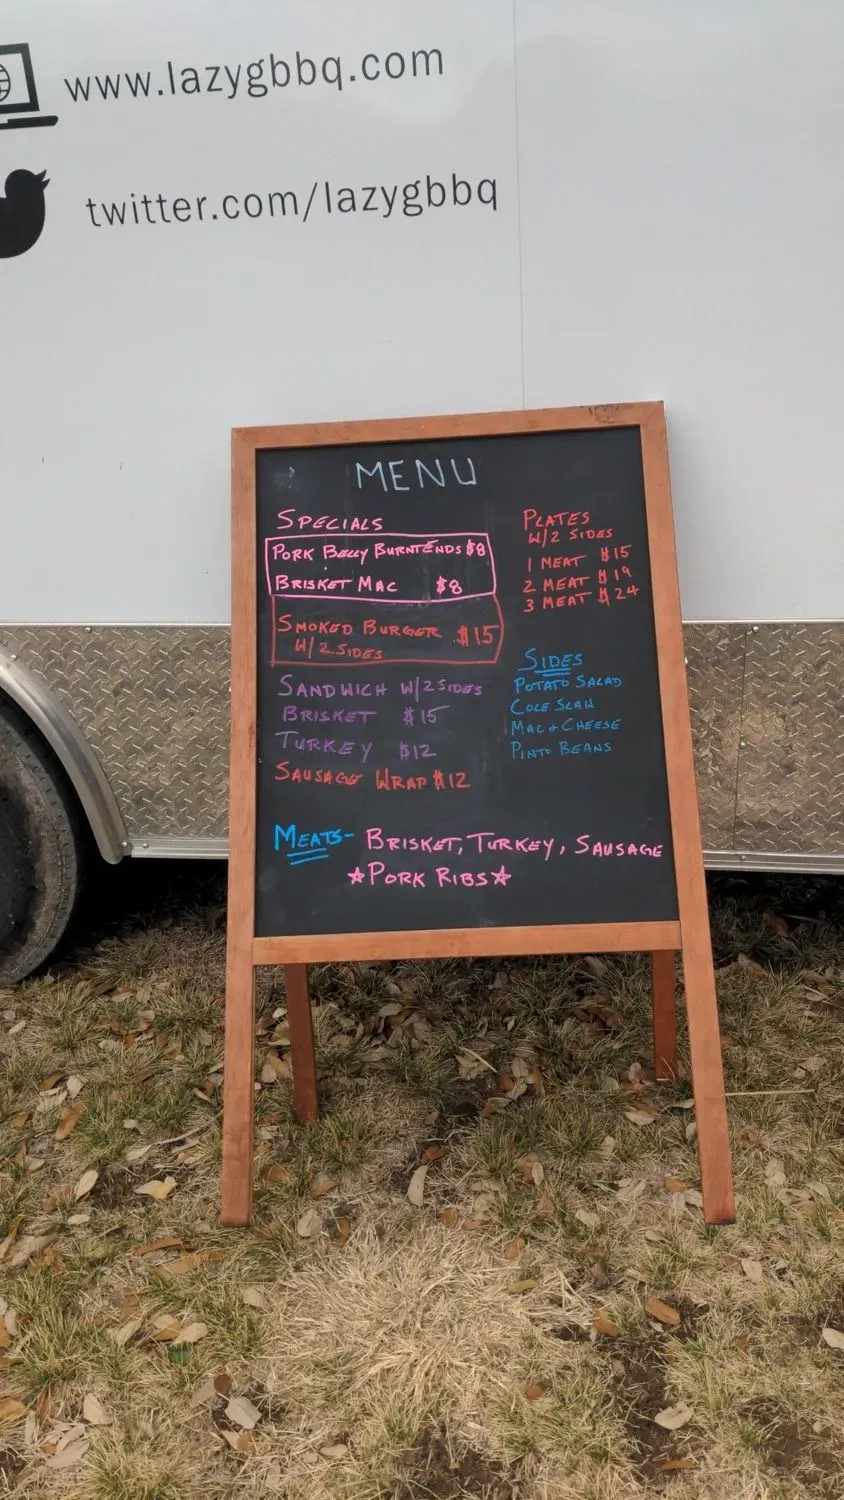 www.lazygbbq.com
twitter.com/lazygbbq
MENU
SPECIALS
PORK BELLY BURNT ENDS $8
BRISKET MAC $8
SMOKED BURGER $15
W/2 SIDES
SANDWICH W/2 SIDES
BRISKET $15
TURKEY $12
SAUSAGE WRAP $12
PLATES
W/2 SIDES
1 MEAT $15
2 MEAT $19
3 MEAT $24
SIDES
POTATO SALAD
COLE SLAW
MAC + CHEESE
PINTO BEANS
MEATS- BRISKET, TURKEY, SAUSAGE
☆PORK RIBS☆